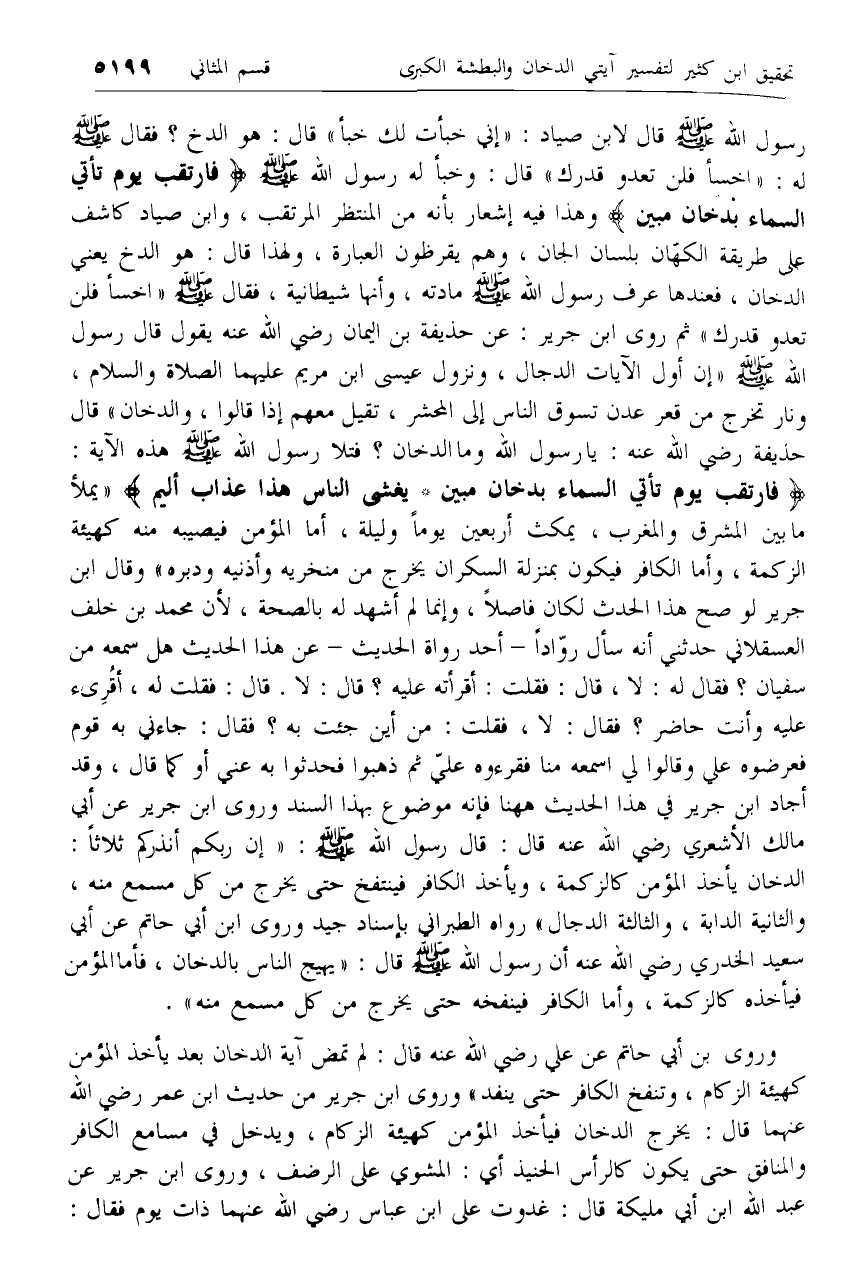 تحقيق ابن كثير لتفسير آيتي الدخان والبطشة الكبرى قسم المثاني ٥١٩٩
رسول الله ﷺ قال لابن صياد : «إني خبأت لك خبأ» قال : هو الدخ ؟ فقال ﷺ
له : «اخسأ فلن تعدو قدرك» قال : وخبأ له رسول الله ﷺ ﴿ فارتقب يوم تأتي
السماء بدخان مبين ﴾ وهذا فيه إشعار بأنه من المنتظر المرتقب ، وابن صياد كاشف
على طريقة الكهّان بلسان الجان ، وهم يقرظون العبارة ، ولهذا قال : هو الدخ يعني
الدخان ، فعندها عرف رسول الله ﷺ مادته ، وأنها شيطانية ، فقال ﷺ «اخسأ فلن
تعدو قدرك» ثم روى ابن جرير : عن حذيفة بن اليمان رضي الله عنه يقول قال رسول
الله ﷺ «إن أول الآيات الدجال ، ونزول عيسى ابن مريم عليهما الصلاة والسلام ،
ونار تخرج من قعر عدن تسوق الناس إلى المحشر ، تقيل معهم إذا قالوا ، والدخان» قال
حذيفة رضي الله عنه : يارسول الله وما الدخان ؟ فتلا رسول الله ﷺ هذه الآية :
﴿ فارتقب يوم تأتي السماء بدخان مبين * يغشى الناس هذا عذاب أليم ﴾ «يملأ
مابين المشرق والمغرب ، يمكث أربعين يوماً وليلة ، أما المؤمن فيصيبه منه كهيئة
الزكمة ، وأما الكافر فيكون بمنزلة السكران يخرج من منخريه وأذنيه ودبره» وقال ابن
جرير لو صح هذا الحدث لكان فاصلاً ، وإنما لم أشهد له بالصحة ، لأن محمد بن خلف
العسقلاني حدثني أنه سأل روّاداً – أحد رواة الحديث – عن هذا الحديث هل سمعه من
سفيان ؟ فقال له : لا ، قال : فقلت : أقرأته عليه ؟ قال : لا . قال : فقلت له ، أقُرِىء
عليه وأنت حاضر ؟ فقال : لا ، فقلت : من أين جئت به ؟ فقال : جاءني به قوم
فعرضوه علي وقالوا لي اسمعه منا فقرءوه عليّ ثم ذهبوا فحدثوا به عني أو كما قال ، وقد
أجاد ابن جرير في هذا الحديث ههنا فإنه موضوع بهذا السند وروى ابن جرير عن أبي
مالك الأشعري رضي الله عنه قال : قال رسول الله ﷺ : « إن ربكم أنذركم ثلاثاً :
الدخان يأخذ المؤمن كالزكمة ، ويأخذ الكافر فينتفخ حتى يخرج من كل مسمع منه ،
والثانية الدابة ، والثالثة الدجال» رواه الطبراني بإسناد جيد وروى ابن أبي حاتم عن أبي
سعيد الخدري رضي الله عنه أن رسول الله ﷺ قال : «يهيج الناس بالدخان ، فأما المؤمن
فيأخذه كالزكمة ، وأما الكافر فينفخه حتى يخرج من كل مسمع منه» .
وروى بن أبي حاتم عن علي رضي الله عنه قال : لم تمض آية الدخان بعد يأخذ المؤمن
كهيئة الزكام ، وتنفخ الكافر حتى ينفد» وروى ابن جرير من حديث ابن عمر رضي الله
عنهما قال : يخرج الدخان فيأخذ المؤمن كهيئة الزكام ، ويدخل في مسامع الكافر
والمنافق حتى يكون كالرأس الحنيذ أي : المشوي على الرضف ، وروى ابن جرير عن
عبد الله ابن أبي مليكة قال : غدوت على ابن عباس رضي الله عنهما ذات يوم فقال :